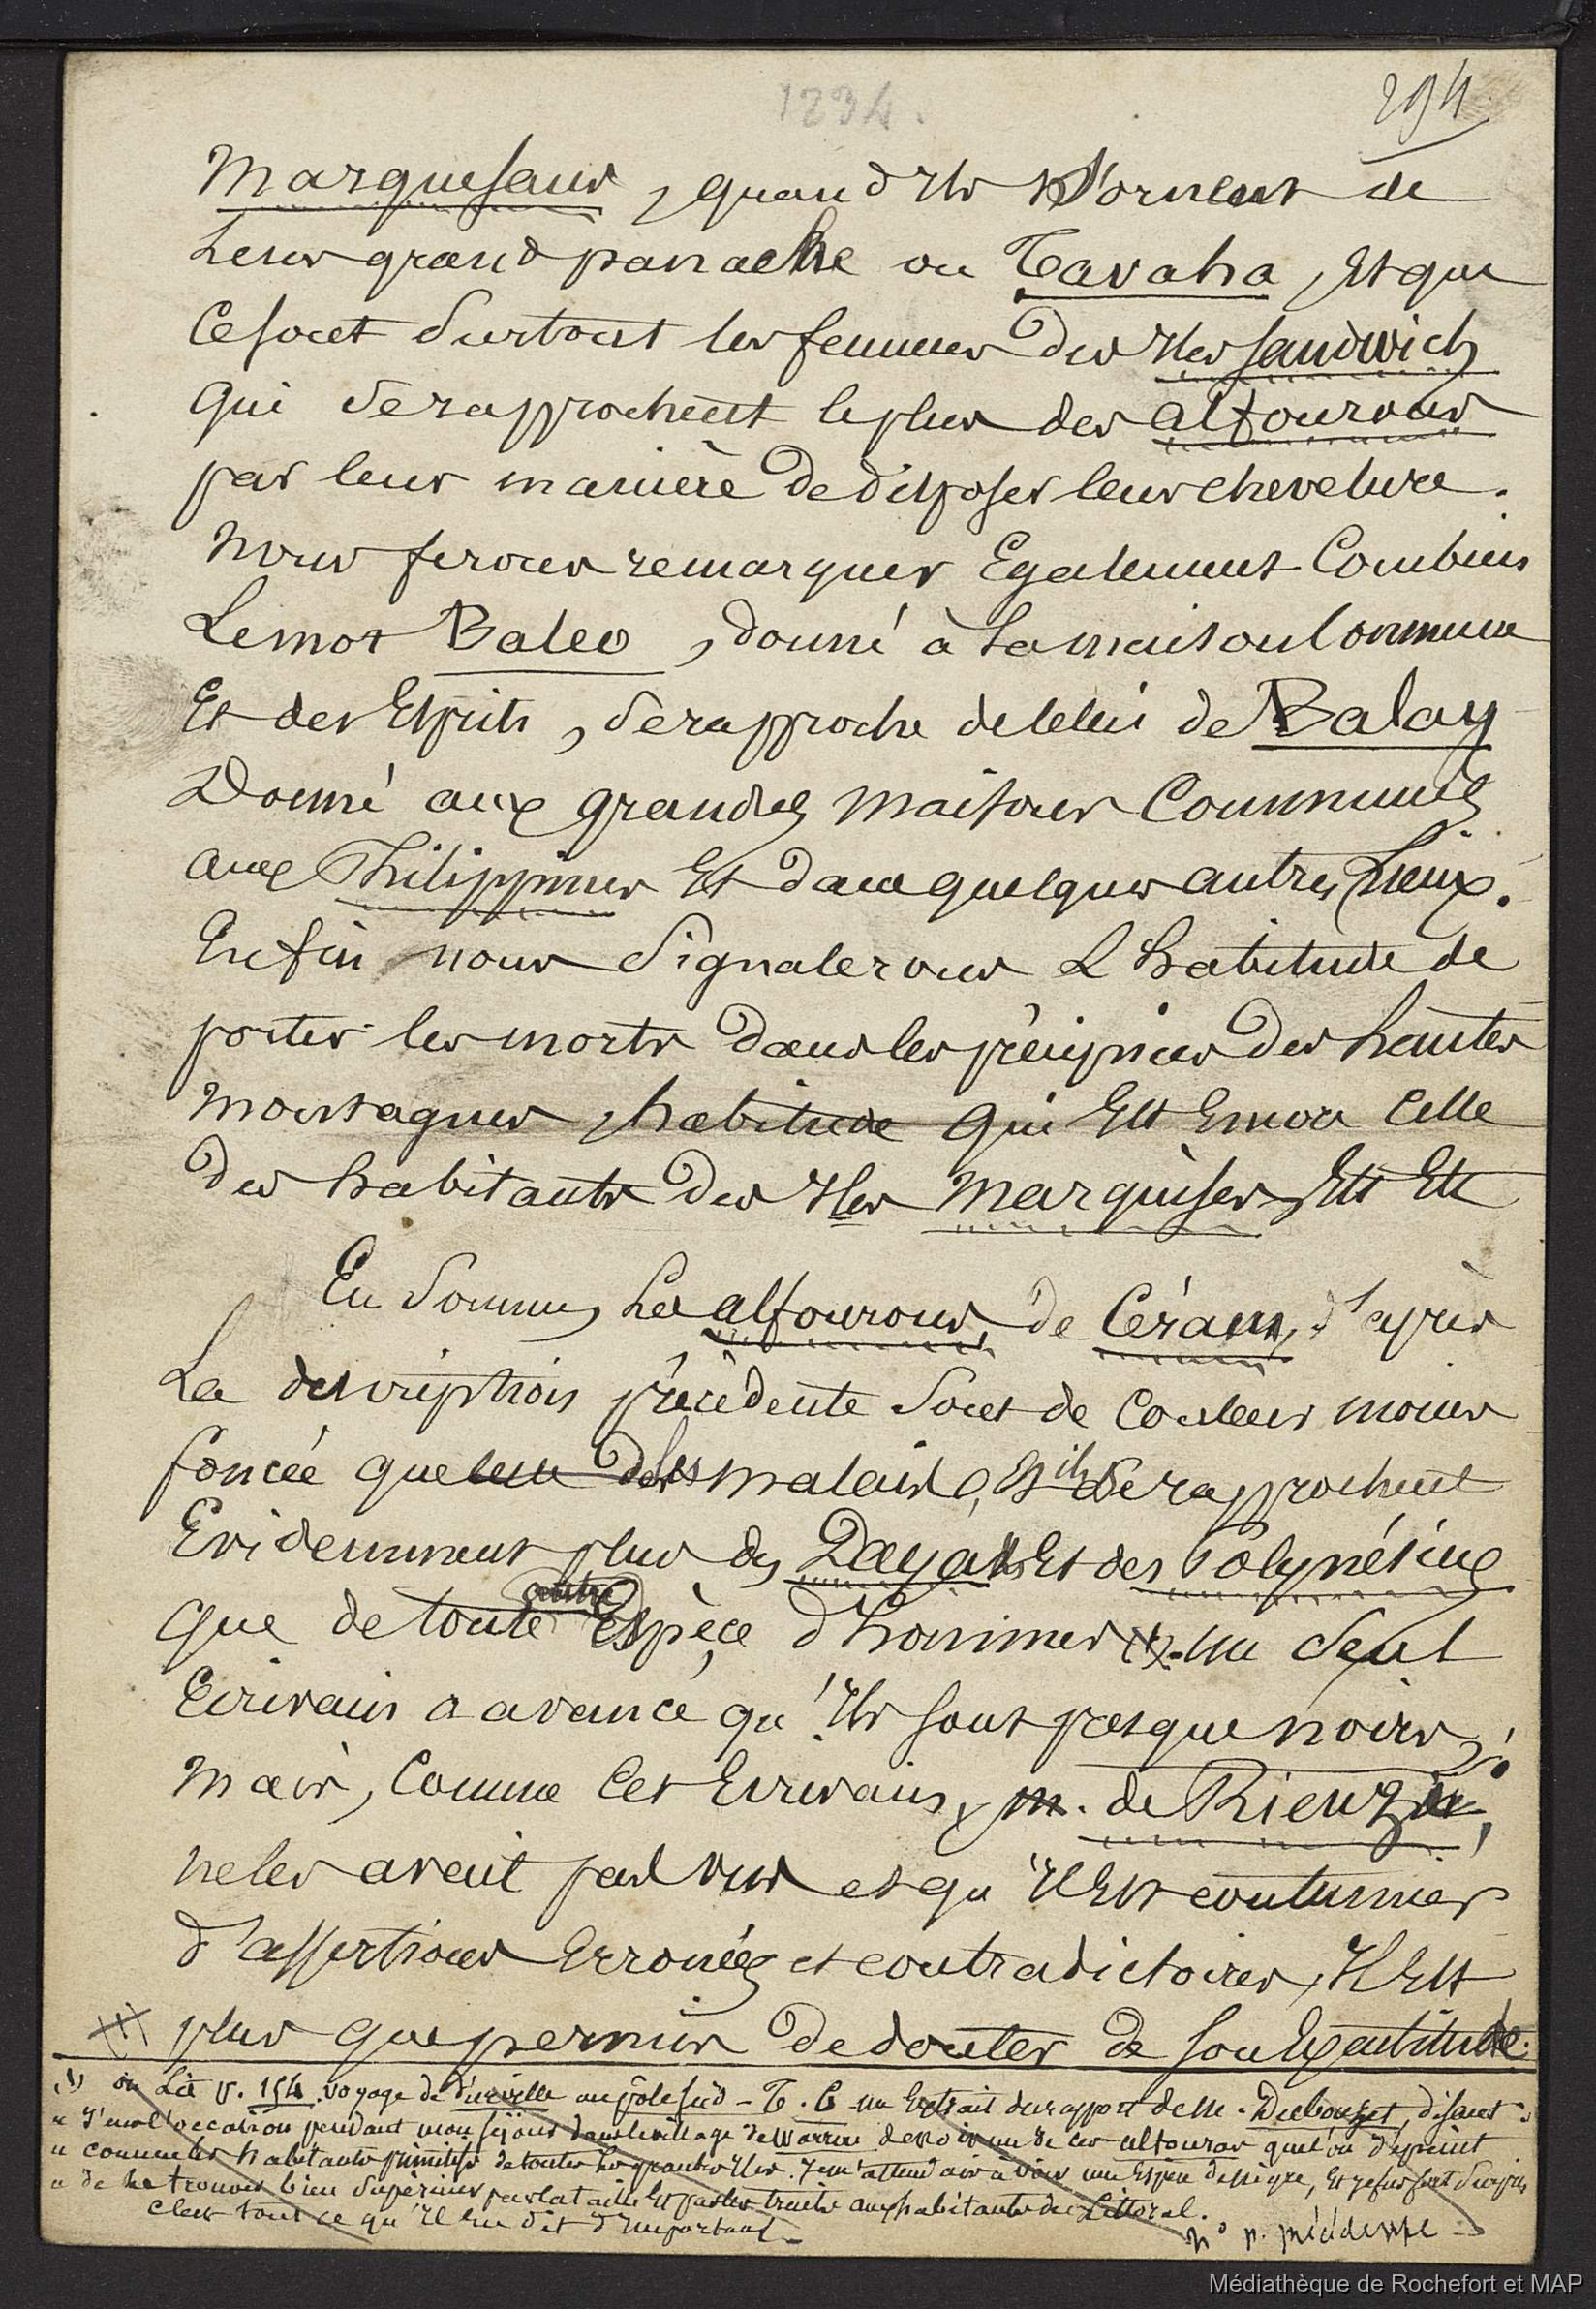 1234.
294
Marquesans, quand Ils s'ornent de
Leur grand panache ou Tavaha, Et que
Ce sont Surtout les femmes des Iles Sandwich
Qui Se rapprochent le plus des alfourous
par leur manière De disposer leur chevelure.
Nous ferons remarquer Egalement Combien
Le mot Baleo, donné à La maison Commune
Et des Esprits, Se rapproche de Celui de Balay
Donné aux grandes maisons Communes
aux Philippines Et dans quelques autres Lieux.
Enfin nous Signalerons L'habitude de
porter les morts Dans les précipices Des hautes
Montagnes, habitude Qui Est Encore Celle
Des habitants Des Iles Marquises, Etc Etc
En Somme, Les alfourous de Céram, d'après
La description précédente Sont de Couleur moins
foncée que les malais, Et ils Se rapprochent
Evidemment plus des Dayaks Et des Polynésiens
Que de toute autre Espèce d'hommes (1). un Seul
Ecrivain a avancé qu'Ils sont presque noirs;
Mais, Comme Cet Ecrivain, m. de Rienzi,
ne les avait pas vus et qu'Il Est coutumier
d'assertions Erronées et contradictoires, Il Est
(1) plus que permis De douter de Son Exactitude.
(1) on Lit p. 154 voyage de d'urville au pôle Sud - T. 6 un Extrait du rapport de M. Dubouzet, disant:
" J'eus l'occasion pendant mon séjour dans le village de Warrou de voir un de ces alfouras que l'on dépeint
" comme les habitants primitifs de toutes les grandes Iles. Je m'attendais à voir une Espèce de nègre, Et je fus fort Surpris
" de le trouver bien Supérieur par la taille Et par les traits aux habitants du Littoral.
C'est tout ce qu'Il en dit d'Important
n° p. précédente
Médiathèque de Rochefort et MAP